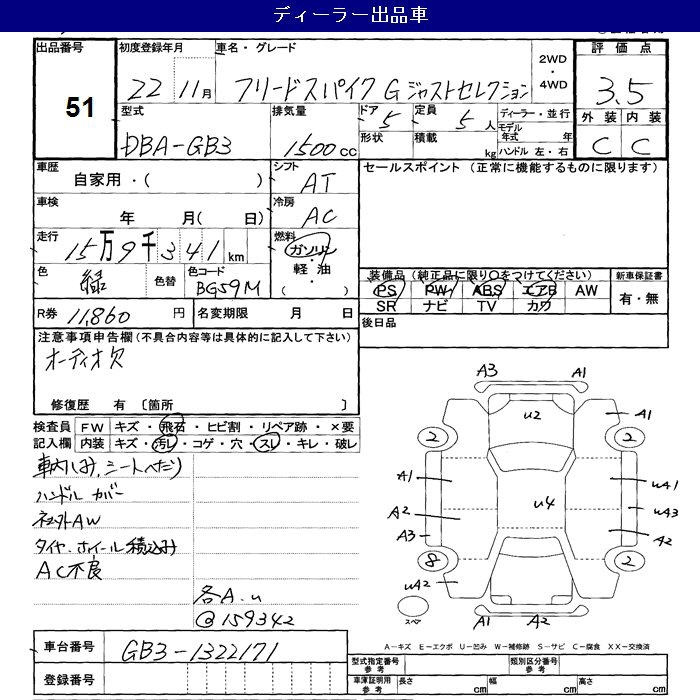 ディーラー出品車
出品番号 初度登録年月 車名・グレード 評価点
51 22 11月 フリードスパイク G ジャストセレクション 2WD・4WD 3.5
型式 排気量 ドア 定員 ディーラー・並行 外装 内装
DBA-GB3 1500cc 5 5人 モデル年式 年 C C
形状 積載 kg ハンドル 左・右
車歴 シフト セールスポイント (正常に機能するものに限ります)
自家用・( ) AT
車検 冷房
年 月( 日) AC
走行 燃料
15万9千341km ガソリン・軽油・( )
色 色替 色コード 装備品(純正品に限り○をつけてください) 新車保証書
緑 BG59M PS PW ABS エアB AW 有・無
SR ナビ TV カワ
R券 11,860円 名変期限 月 日 後日品
注意事項申告欄(不具合内容等は具体的に記入して下さい)
オーディオ欠
修復歴 有 〔箇所 〕
検査員 FW キズ・飛石・ヒビ割・リペア跡・×要
記入欄 内装 キズ・汚レ・コゲ・穴・スレ・キレ・破レ
車内しみ、シートへたり
ハンドル カバー
社外AW
タイヤ・ホイール積込み
AC不良
各A.u
@159342
A3 A1
u2 A1
2 2
A1 uA1
u4 uA3
A2 A2
A3
8 2
uA2
スペア A1 A2
A-キズ E-エクボ U-凹み W-補修跡 S-サビ C-腐食 XX-交換済
車台番号 GB3-1322171 型式指定番号 参考 類別区分番号 参考
登録番号 車庫証明用 参考 長さ cm 幅 cm 高さ cm